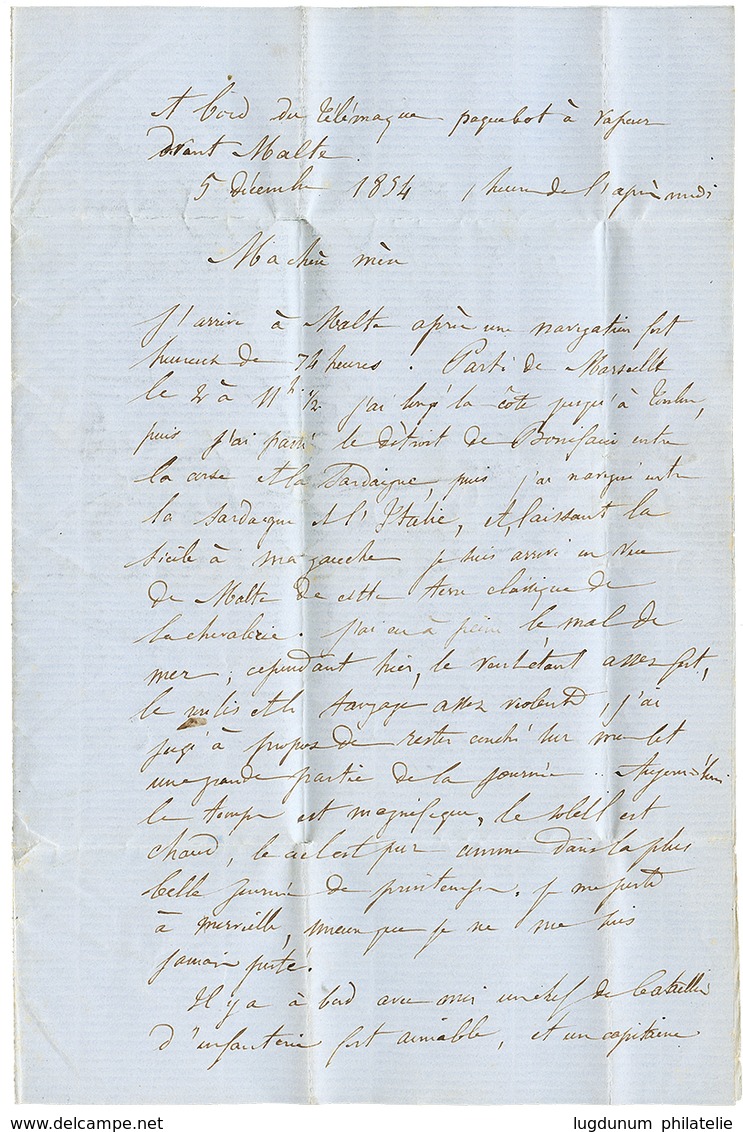 A bord du Télémaque paquebot à vapeur
devant Malte.
5 décembre 1854 1 heure de l'après midi
Ma chère mère
J'arrive à Malte après une navigation fort
heureuse de 74 heures. Parti de Marseille
le 2 à 11h 1/2 j'ai longé la côte jusqu'à Toulon,
puis j'ai passé le détroit de Bonifacio entre
la corse et la Sardaigne, puis j'ai navigué entre
la Sardaigne et l'Italie, et, laissant la
Sicile à ma gauche je suis arrivé en vue
de Malte de cette terre classique de
la chevalerie. J'ai eu à peine le mal de
mer; cependant hier, le vent étant assez fort,
le roulis et le tangage assez violents, j'ai
jugé à propos de rester couché sur mon lit
une grande partie de la journée. Aujourd'hui
le temps est magnifique, le soleil est
chaud, le ciel est pur comme dans la plus
belle journée de printemps. je me porte
à merveille, mieux que je ne me suis
jamais porté.
Il y a à bord avec moi un chef de bataillon
d'infanterie fort aimable, et un capitaine
lugdunum philatelie